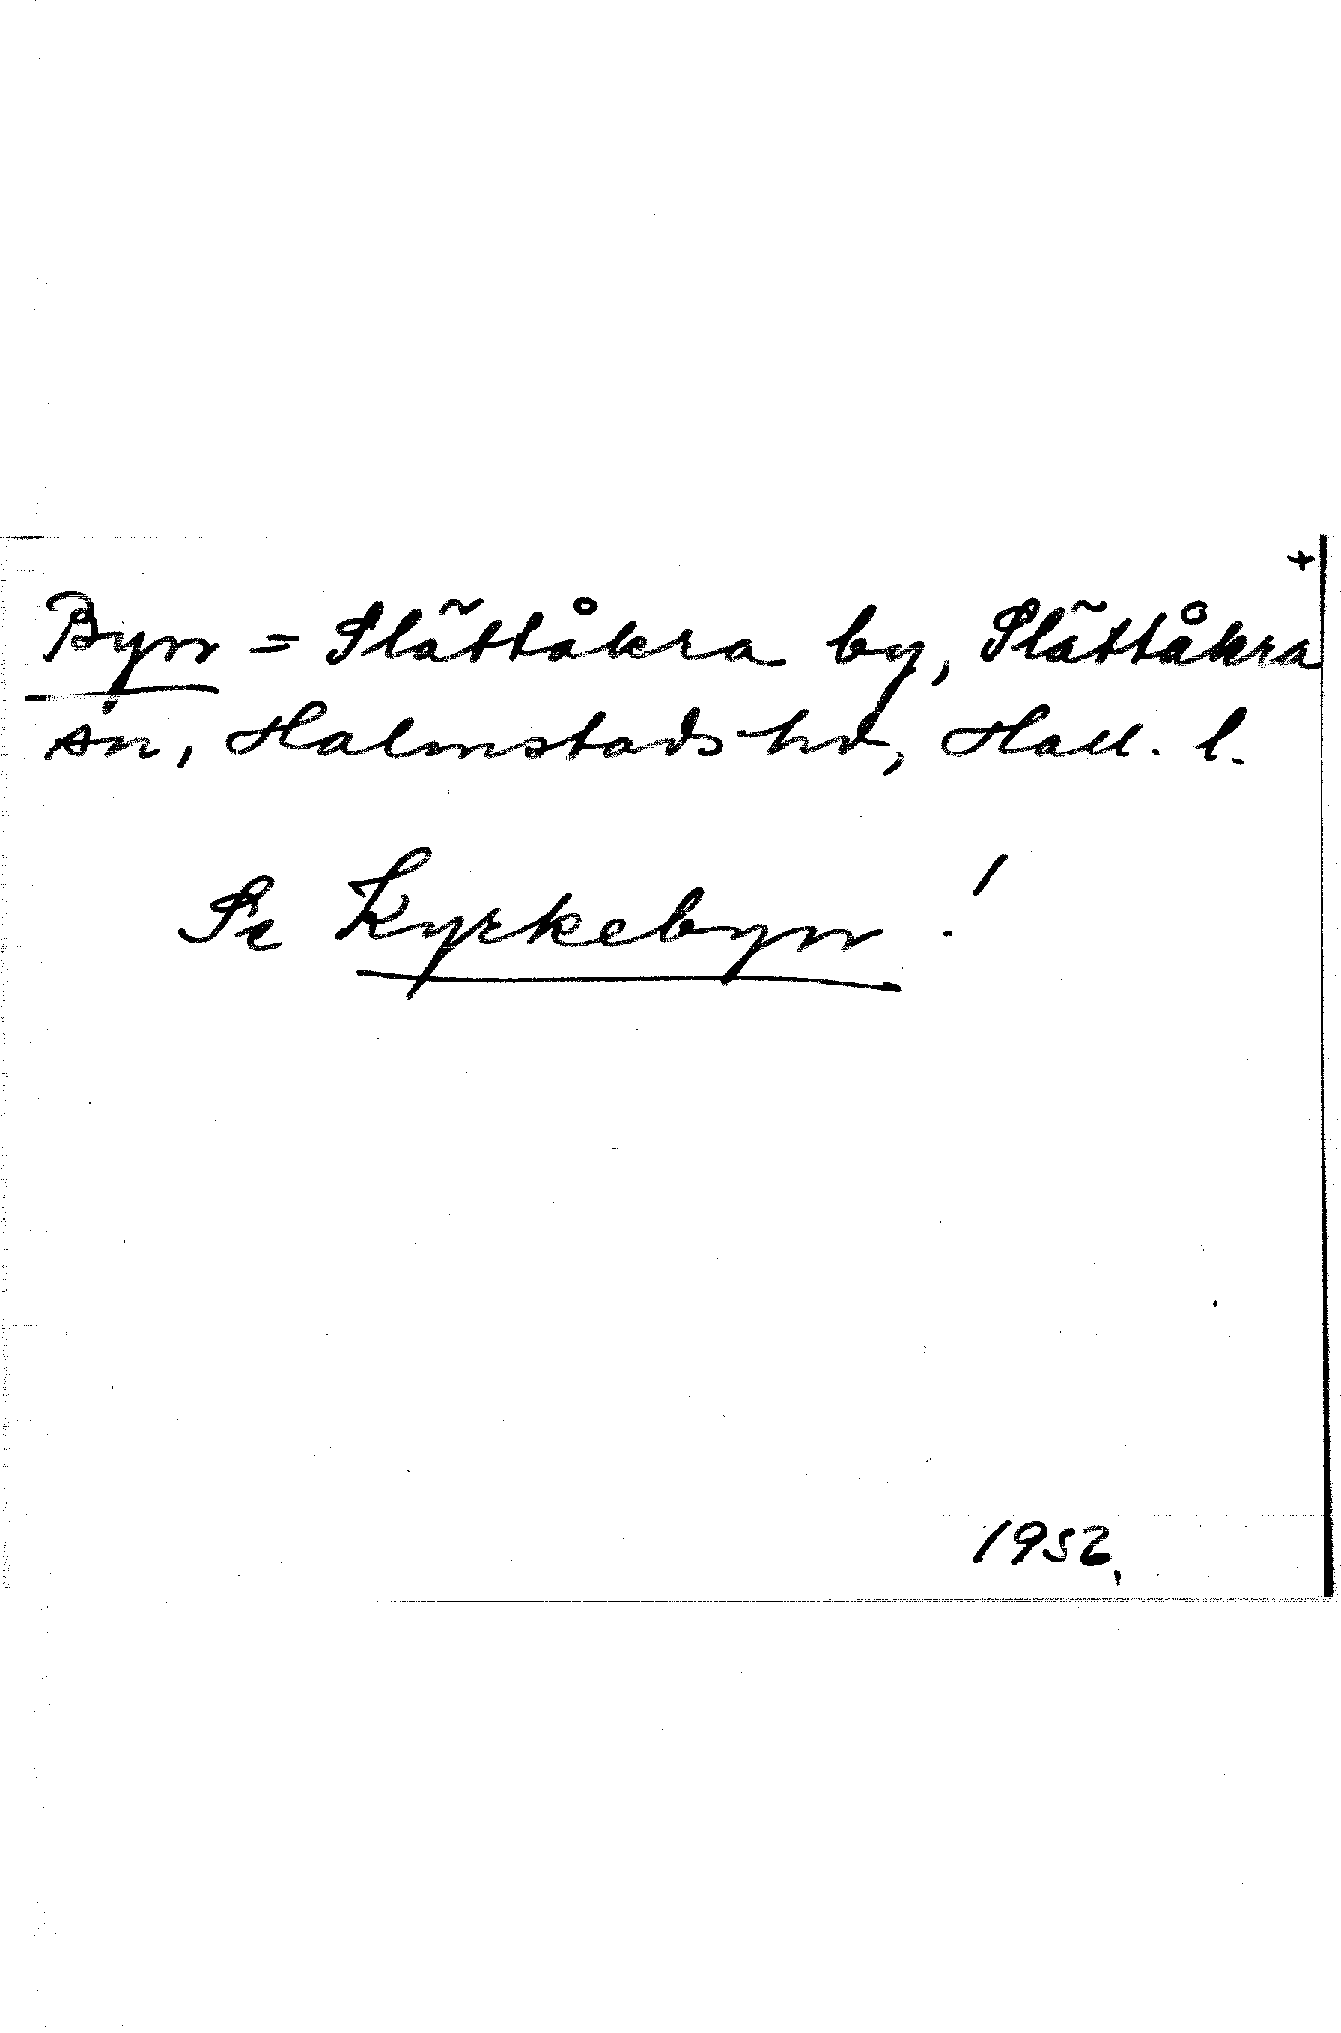 +
Byn = Slättåkra by, Slättåkra
sn, Halmstads hd, Hall. l.
Se Kyrkebyn!
1952.